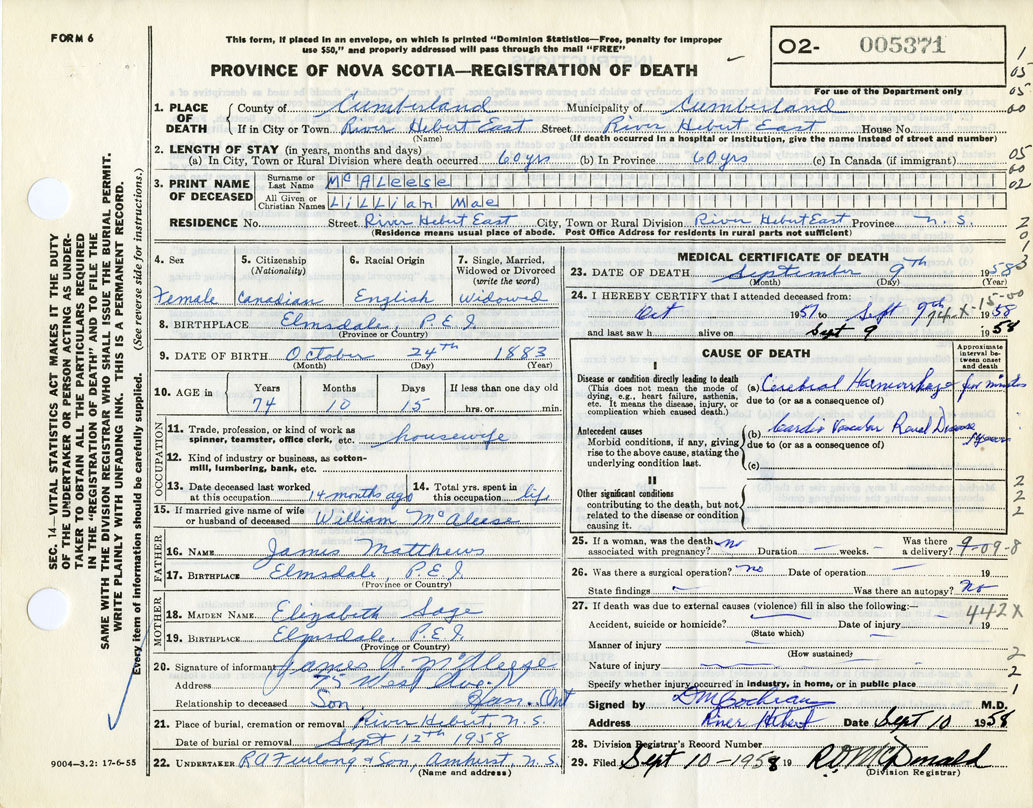 FORM 6
This form, if placed in an envelope, on which is printed "Dominion Statistics—Free, penalty for improper
use $50," and properly addressed will pass through the mail "FREE"
PROVINCE OF NOVA SCOTIA—REGISTRATION OF DEATH
O2- 005371
For use of the Department only
1. PLACE OF DEATH County of Cumberland Municipality of Cumberland
If in City or Town River Hebert East Street River Hebert East House No.
(Name) (If death occurred in a hospital or institution, give the name instead of street and number)
2. LENGTH OF STAY (in years, months and days)
(a) In City, Town or Rural Division where death occurred 60 yrs (b) In Province 60 yrs (c) In Canada (if immigrant)
3. PRINT NAME OF DECEASED Surname or Last Name McALeese
All Given or Christian Names LiLLian Mae
RESIDENCE No. Street River Hebert East City, Town or Rural Division River Hebert East Province N.S.
(Residence means usual place of abode. Post Office Address for residents in rural parts not sufficient)
4. Sex Female
5. Citizenship (Nationality) Canadian
6. Racial Origin English
7. Single, Married, Widowed or Divorced (write the word) Widowed
8. BIRTHPLACE Elmsdale, P.E.I.
(Province or Country)
9. DATE OF BIRTH October 24th 1883
(Month) (Day) (Year)
10. AGE in Years 74 Months 10 Days 15 If less than one day old hrs. or min.
OCCUPATION
11. Trade, profession or kind of work as spinner, teamster, office clerk, etc. housewife
12. Kind of industry or business, as cotton-
mill, lumbering, bank, etc.
13. Date deceased last worked at this occupation 14 months ago
14. Total yrs. spent in this occupation life
15. If married give name of wife or husband of deceased William McAleese
FATHER
16. NAME James Matthews
17. BIRTHPLACE Elmsdale, P.E.I.
(Province or Country)
MOTHER
18. MAIDEN NAME Elizabeth Sage
19. BIRTHPLACE Elmsdale, P.E.I.
(Province or Country)
20. Signature of informant James A. McAleese
Address 75 West Ave. N
Relationship to deceased Son Ham. Ont
21. Place of burial, cremation or removal River Hebert, N.S.
Date of burial or removal Sept 12th 1958
22. UNDERTAKER R A Furlong & Son, Amherst, N.S.
(Name and address)
MEDICAL CERTIFICATE OF DEATH
23. DATE OF DEATH September 9th 1958
(Month) (Day) (Year)
24. I HEREBY CERTIFY that I attended deceased from:
Oct 1957 to Sept 9th 1958
74-X-15-00
and last saw h alive on Sept 9 1958
CAUSE OF DEATH
Approximate interval between onset and death
I
Disease or condition directly leading to death
(This does not mean the mode of dying, e.g., heart failure, asthenia, etc. It means the disease, injury, or complication which caused death.)
(a) Cerebral Haemorrhage few minutes
due to (or as a consequence of)
Antecedent causes
Morbid conditions, if any, giving rise to the above cause, stating the underlying condition last.
(b) Cardio Vascular Renal Disease
due to (or as a consequence of)
(c)
II
Other significant conditions
contributing to the death, but not related to the disease or condition causing it.
25. If a woman, was the death associated with pregnancy? no Duration — weeks. — Was there a delivery? 9-09-8
26. Was there a surgical operation? no Date of operation — 19
State findings Was there an autopsy? No
27. If death was due to external causes (violence) fill in also the following:—
442X
Accident, suicide or homicide? Date of injury 19
(State which)
Manner of injury
(How sustained)
Nature of injury
Specify whether injury occurred in industry, in home, or in public place
Signed by D M Cochran M.D.
Address River Hebert Date Sept 10 1958
28. Division Registrar's Record Number
29. Filed Sept 10-1958 19 R.O. McDonald
(Division Registrar)
SEC. 14—VITAL STATISTICS ACT MAKES IT THE DUTY
OF THE UNDERTAKER OR PERSON ACTING AS UNDER-
TAKER TO OBTAIN ALL THE PARTICULARS REQUIRED
IN THE "REGISTRATION OF DEATH" AND TO FILE THE
SAME WITH THE DIVISION REGISTRAR WHO SHALL ISSUE THE BURIAL PERMIT.
WRITE PLAINLY WITH UNFADING INK. THIS IS A PERMANENT RECORD.
Every item of information should be carefully supplied. (See reverse side for instructions.)
9004—3.2: 17-6-55
1
05
05
00
05
00
02
2
0
1
3
2
2
2
2
2
1